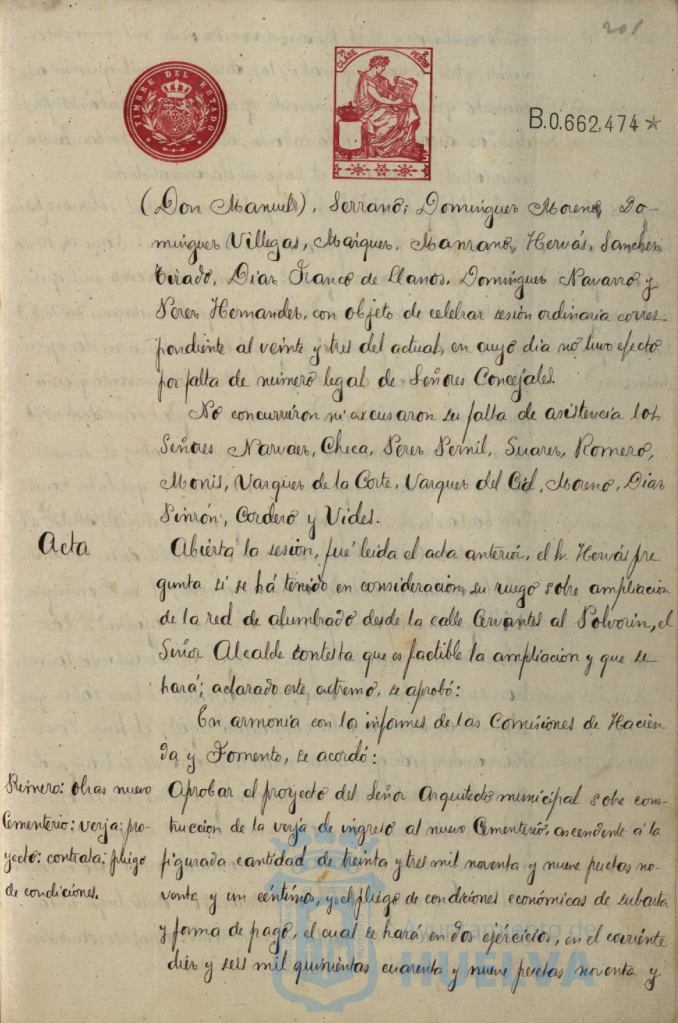 201
TIMBRE DEL ESTADO
7ª CLASE 2 PESETAS
B.0.662,474 *
(Don Manuel), Serrano, Domínguez Moreno, Do-
mínguez Villegas, Marquez, Manzano, Hervás, Sanchez
Tirado, Diaz Franco de Llanos, Domínguez Navarro y
Perez Hernandez, con objeto de celebrar sesión ordinaria corres
pondiente al veinte y tres del actual, en cuyo dia no tuvo efecto
por falta de número legal de Señores Concejales.
No concurrieron ni excusaron su falta de asistencia los
Señores Narvaez, Checa, Perez Pernil, Suarez, Romero,
Monis, Vazquez de la Corte, Vazquez del Cid, Moreno, Diaz
Pinzón, Cordero y Vides.
Acta
Abierta la sesión, fué leida el acta anterior, el Sr. Hervás pre
gunta si se há tenido en consideracion su ruego sobre ampliacion
de la red de alumbrado desde la calle Cervantes al Polvorin, el
Señor Alcalde contesta que es factible la ampliacion y que se
hará; aclarado este extremo, se aprobó:
En armonia con los informes de las Comisiones de Hacien
da y Fomento, se acordó:
Primero: obras nuevo
Cementerio: verja: pro-
yecto: contrata: pliego
de condiciones.
Aprobar el proyecto del Señor Arquitecto municipal sobre cons-
truccion de la verja de ingreso al nuevo Cementerio, ascendente á la
figurada cantidad de treinta y tres mil noventa y nueve pesetas no-
venta y un céntimos, y el pliego de condiciones económicas de subasta
y forma de pago, el cual se hará en dos ejercicios, en el corriente
diez y seis mil quinientas cuarenta y nueve pesetas noventa y
Ayuntamiento de
HUELVA